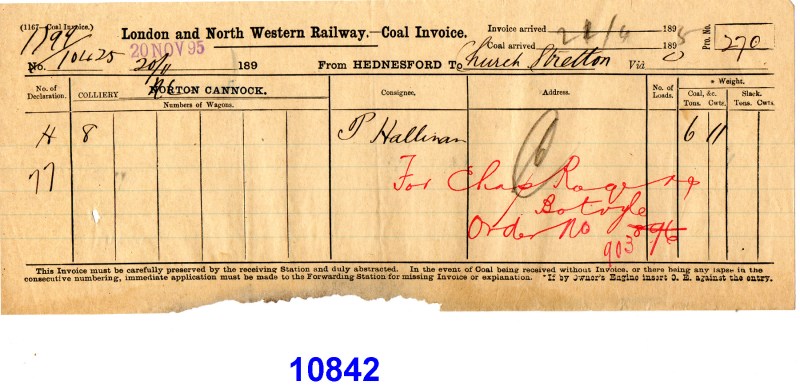 (1167—Coal Invoice.)
London and North Western Railway.—Coal Invoice.
Invoice arrived 21/4 189
Coal arrived 1895
Pro. No. 270
20 NOV 95
No. 10425
20/11 189
From HEDNESFORD To Church Stretton Via
No. of Declaration.
COLLIERY NORTON CANNOCK.
Numbers of Wagons.
Consignee.
Address.
No. of Loads.
* Weight.
Coal, &c. Tons. Cwts.
Slack. Tons. Cwts.
H 8 P Hallinan 6 11
77
For Chas Rogers
Botvyle
Order No 896
903
This Invoice must be carefully preserved by the receiving Station and duly abstracted. In the event of Coal being received without Invoice, or there being any lapse in the
consecutive numbering, immediate application must be made to the Forwarding Station for missing Invoice or explanation. *If by Owner's Engine insert O. E. against the entry.
10842